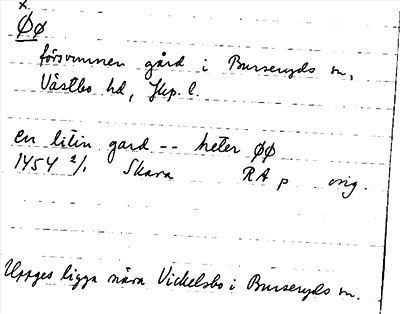 x
Øø
försvunnen gård i Burseryds sn,
Västbo hd, Jkp. l.
en litin gard -- heter ØØ
1454 2/1 Skara RA p orig.
Uppges ligga nära Vickelsbo i Burseryds sn.